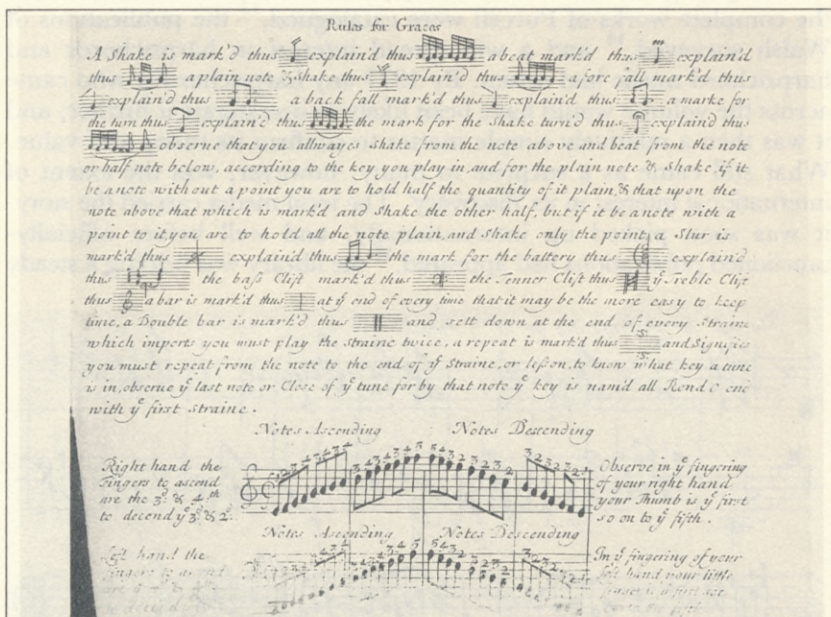 Rules for Graces
A Shake is mark'd thus explain'd thus a beat mark'd thus explain'd
thus a plain note & Shake thus explain'd thus a fore fall mark'd thus
explain'd thus a back fall mark'd thus explain'd thus a marke for
the turn thus explain'd thus the mark for the Shake turn'd thus explain'd thus
observe that you allwayes Shake from the note above and beat from the note
or half note below, according to the key you play in, and for the plain note & Shake, if it
be a note without a point you are to hold half the quantity of it plain, & that upon the
note above that which is mark'd and Shake the other half, but if it be a note with a
point to it, you are to hold all the note plain, and Shake only the point, a Slur is
mark'd thus explain'd thus the mark for the battery thus explain'd
thus the bass Clift mark'd thus the Tenner Clift thus yᵉ Treble Clift
thus a bar is mark'd thus at yᵉ end of every time that it may be the more easy to keep
time, a Double bar is mark'd thus and sett down at the end of every Straine
which imports you must play the Straine twice, a repeat is mark'd thus :S: and Signifies
you must repeat from the note to the end of yᵉ Straine, or lesson, to know what key a tune
is in, observe yᵉ last note or Close of yᵉ tune for by that note yᵉ key is nam'd all Rond O end
with yᵉ first straine.
Notes Ascending Notes Descending
Right hand the
Fingers to ascend
are the 3ᵈ & 4ᵗʰ
to decend yᵉ 3ᵈ & 2ᵈ.
Observe in yᵉ fingering
of your right hand
your Thumb is yᵉ first
so on to yᵉ fifth.
Notes Ascending Notes Descending
Left hand the
fingers to ascend
In yᵉ fingering of your
left hand your little